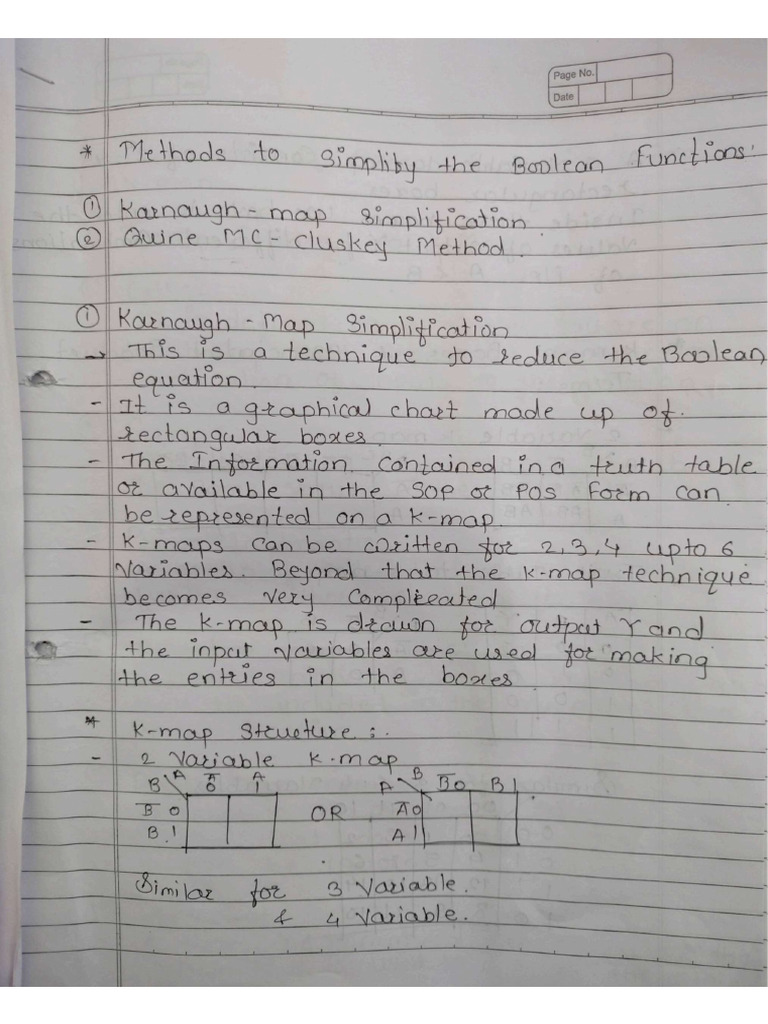 Page No.
Date
* Methods to Simplify the Boolean Functions:
① Karnaugh-map Simplification.
② Quine MC-Cluskey Method.
① Karnaugh-Map Simplification
→ This is a technique to reduce the Boolean
equation.
- It is a graphical chart made up of.
rectangular boxes.
- The Information contained in a truth table
or available in the SOP or POS form can
be represented on a k-map.
- K-maps can be written for 2,3,4 upto 6
Variables. Beyond that the k-map technique
becomes very complicated
- The k-map is drawn for output Y and
the input variables are used for making
the entries in the boxes
* K-map Structure:.
- 2 Variable K-map
B \ A A̅ 0 A 1 A \ B B̅ 0 B 1
B̅ 0 OR A̅ 0
B 1 A 1
Similar for 3 Variable.
& 4 Variable.